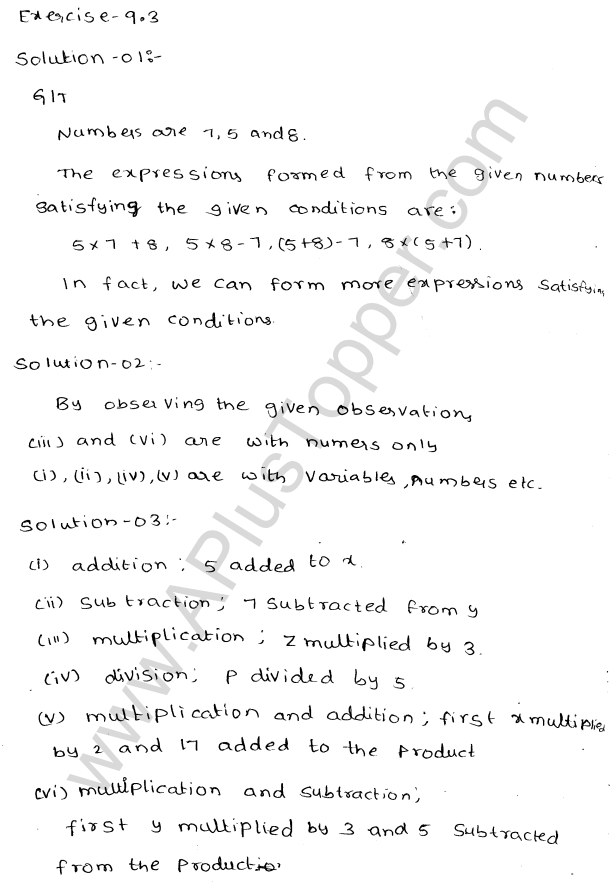 Exercise-9.3
Solution-01:-
GIT
Numbers are 7, 5 and 8.
The expressions formed from the given numbers
satisfying the given conditions are:
5×7+8, 5×8-7, (5+8)-7, 8×(5+7).
In fact, we can form more expressions satisfying
the given conditions.
Solution-02:-
By observing the given observation,
(iii) and (vi) are with numers only
(i), (ii), (iv), (v) are with variables, numbers etc.
Solution-03:-
(i) addition; 5 added to x.
(ii) subtraction; 7 subtracted from y
(iii) multiplication; z multiplied by 3.
(iv) division; P divided by 5.
(v) multiplication and addition; first x multiplied
by 2 and 17 added to the product
(vi) multiplication and subtraction;
first y multiplied by 3 and 5 subtracted
from the product
www.APlusTopper.com